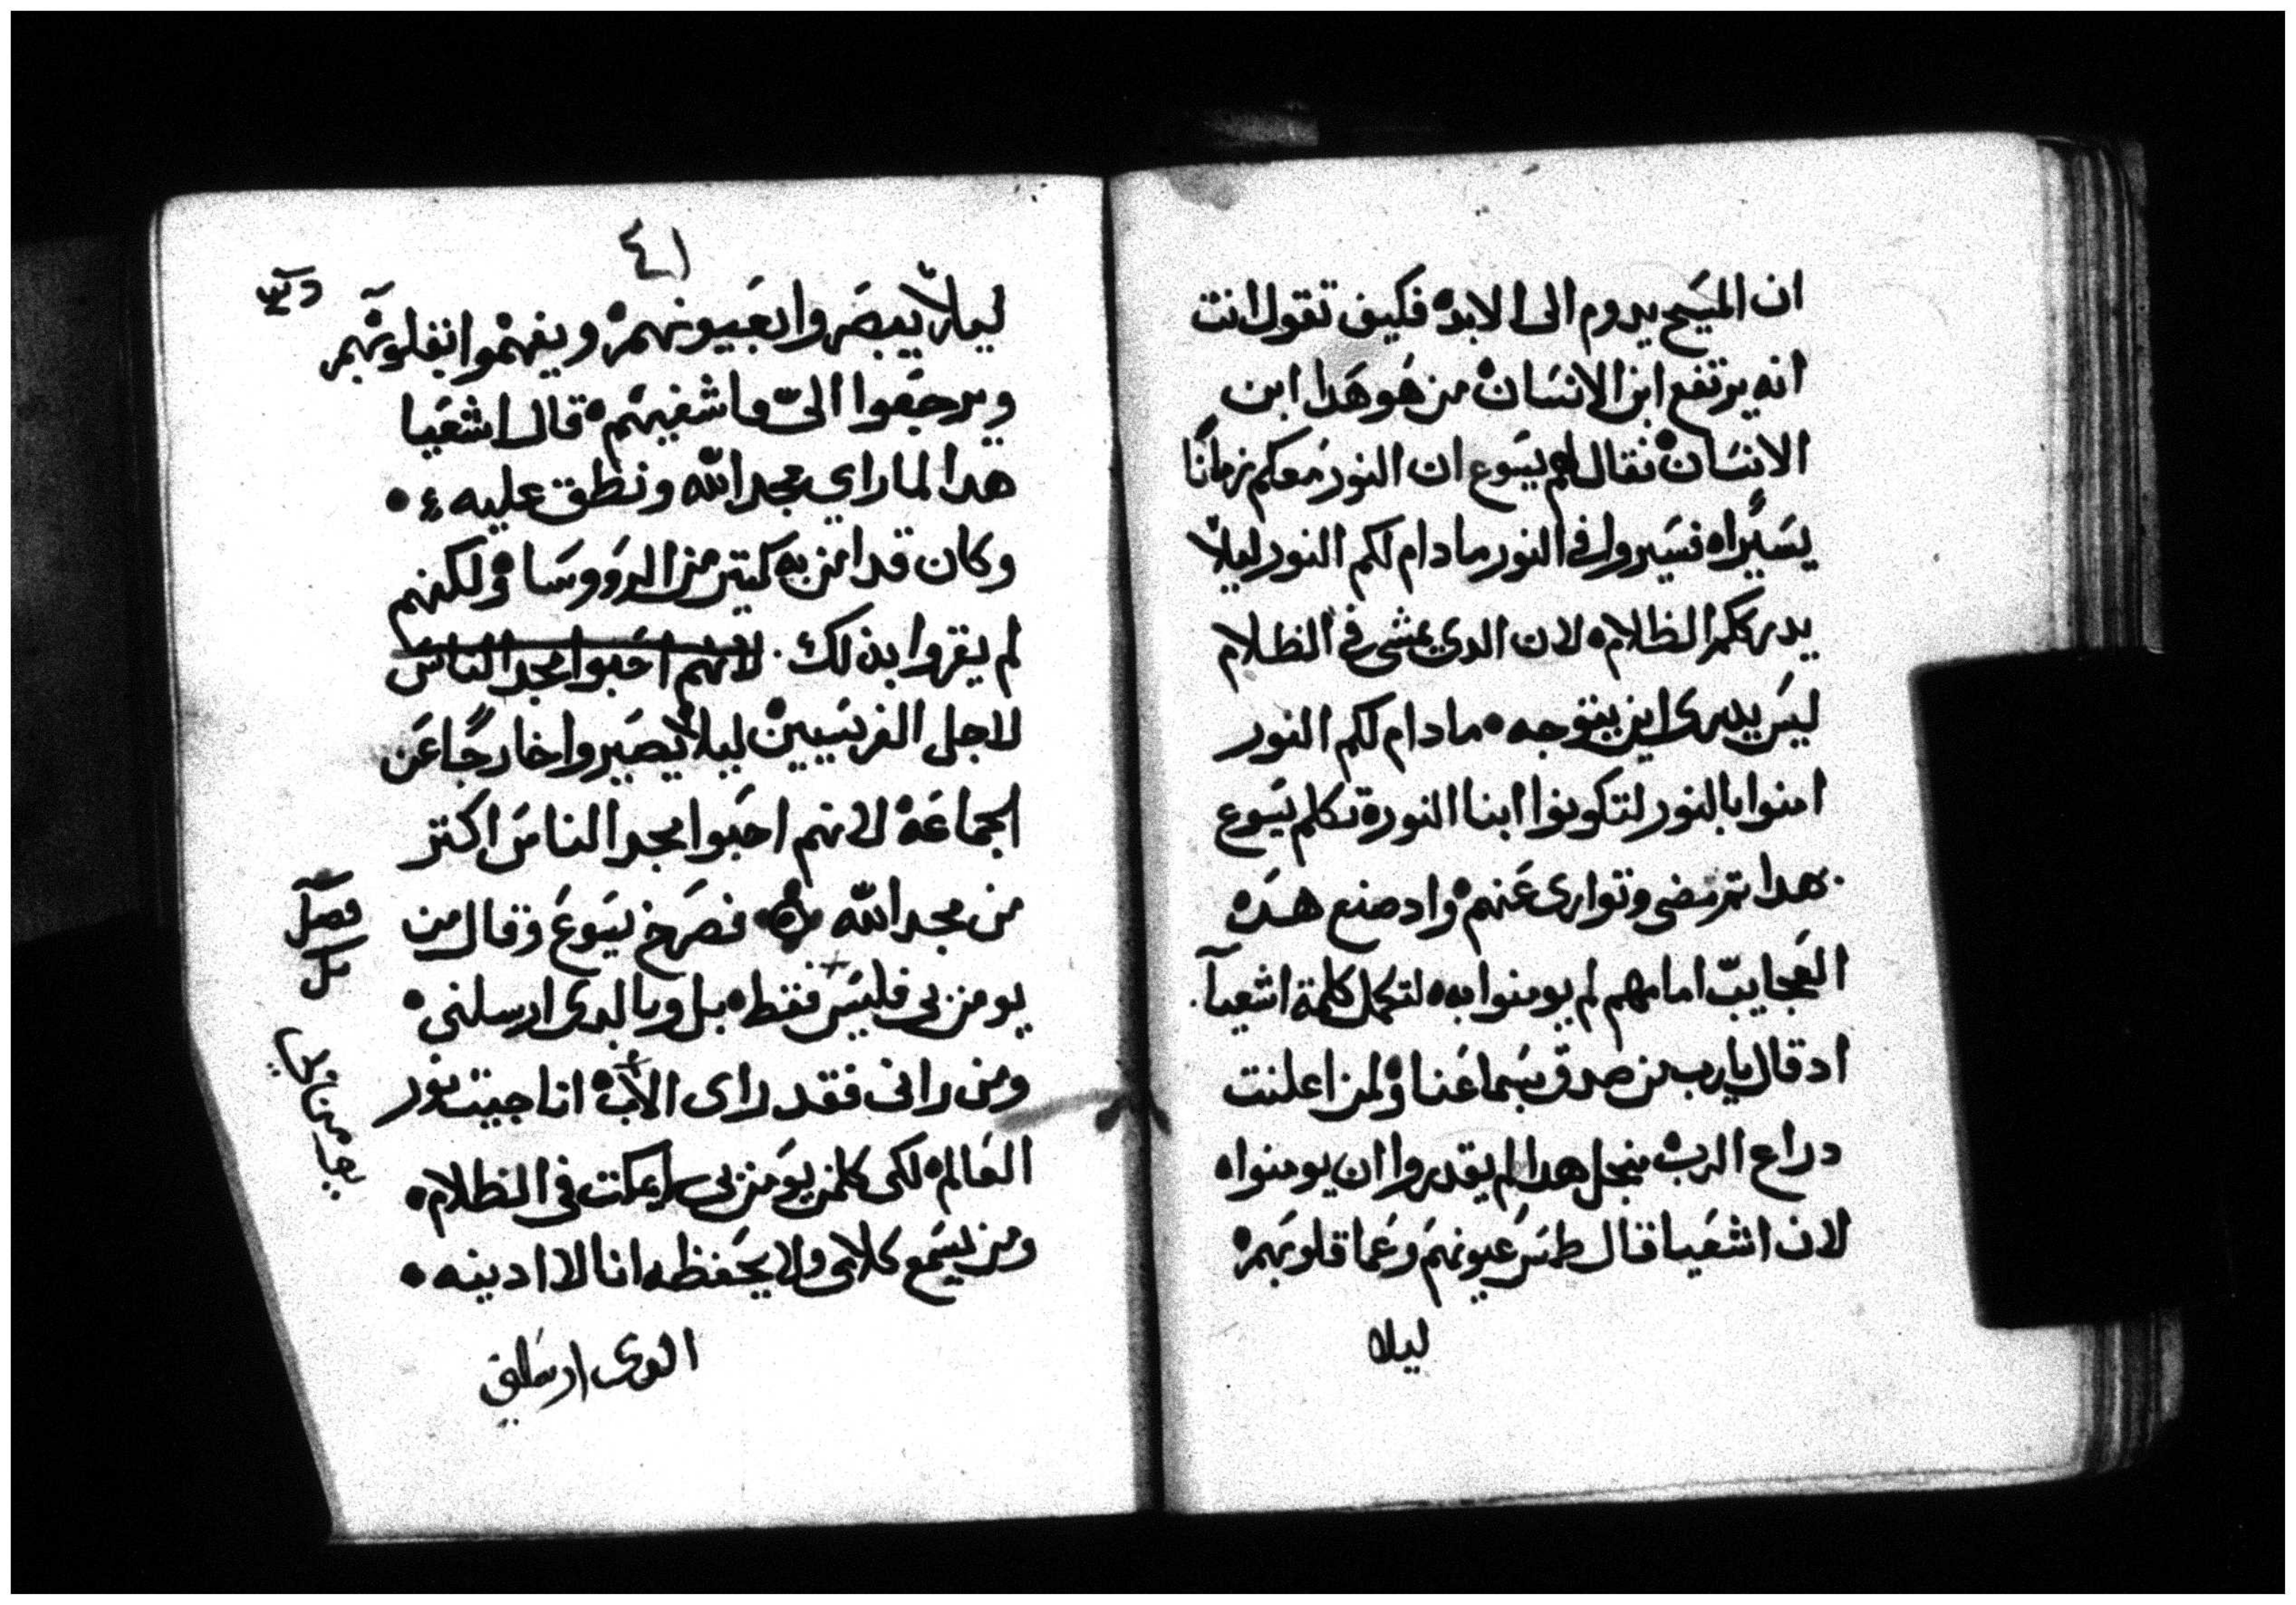 ان المسَيح يدوم الى الابد ه فكيف تقول انت
انه يرتفع ابن الانسَان ه من هَو هَدا ابن
الانسَان ه فقال لهم يسَوع ان النور مَعكم زمانًا
يسَيرًا ه فسَيروا في النور ما دام لكم النور ليلاّ
يدرككم الظلام ه لان الدي يمشى في الظلام
ليسَ يدرى اين يتوجه ه ما دام لكم النور
امنوا بالنور لتكونوا ابنا النور ه تكلم يسَوع
هدا تم مضى وتوارى عَنهم ه واد صنع هده
العَجايبّ امامهم لم يومنوا به ه لتكمل كلمة اشعيآ
اد قال يارب من صدق بسَماعَنا ه ولمن اعلنت
دراع الرب ه منجل هدا لم يقدروا ان يومنوا ه
لان اشعَيا قال طمسَ عَيونهمَ وعَما قلوبَهم ه
ليلا
٤١
ليلاّ يبصَروا بعَيونهم ه ويفهموا بقلوبَهم
ويرجعَوا اليّ فاشفيهَم ه قال اشعَيا
هدا لما راي مجد الله ونطق عليه ه
وكان قد امن به كتير من الروَوسَا ه ولكنهم
لم يقروا بذلك. لانهم احَبوا مجد الناسَ
لاجل الفريسَيين ه ليلاّ يصَيروا خارجًا عَن
الجماعَة ه لانهم احَبوا مجد الناسَ اكتر
من مجد الله ه فصَرخ يسَوعَ وقال من
يومن بي فليسَ فقط ه بل وبالدى ارسلنى ه
ومن رانى فقد راى الاب ه انا جيت نور
العَالم ه لكى كلمن يوَمن بى لا يمكت في الظلام ه
ومن يسَمع كلامى ولا يحَفظه انا لا ادينه ه
فصل
الدى ارسَلنى